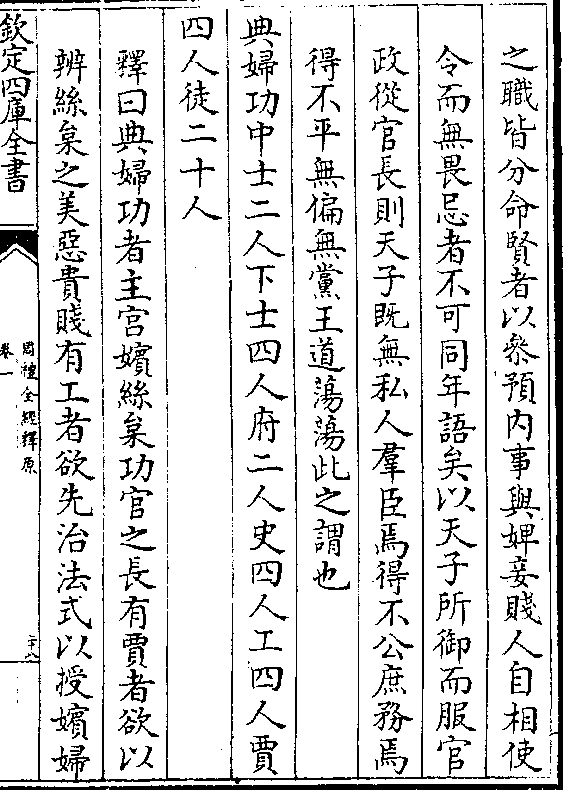 之職皆分命賢者以叅預内事與婢妾賤人自相使
令而無畏忌者不可同年語矣以天子所御而服官
政從官長則天子既無私人羣臣焉得不公庶務焉
得不平無偏無黨王道蕩蕩此之謂也
典婦功中士二人下士四人府二人史四人工四人賈
四人徒二十人
釋曰典婦功者主宫嬪絲枲功官之長有賈者欲以
辨絲枲之美惡貴賤有工者欲先治法式以授嬪婦
欽定四庫全書
周禮全經釋原
卷一
二十八